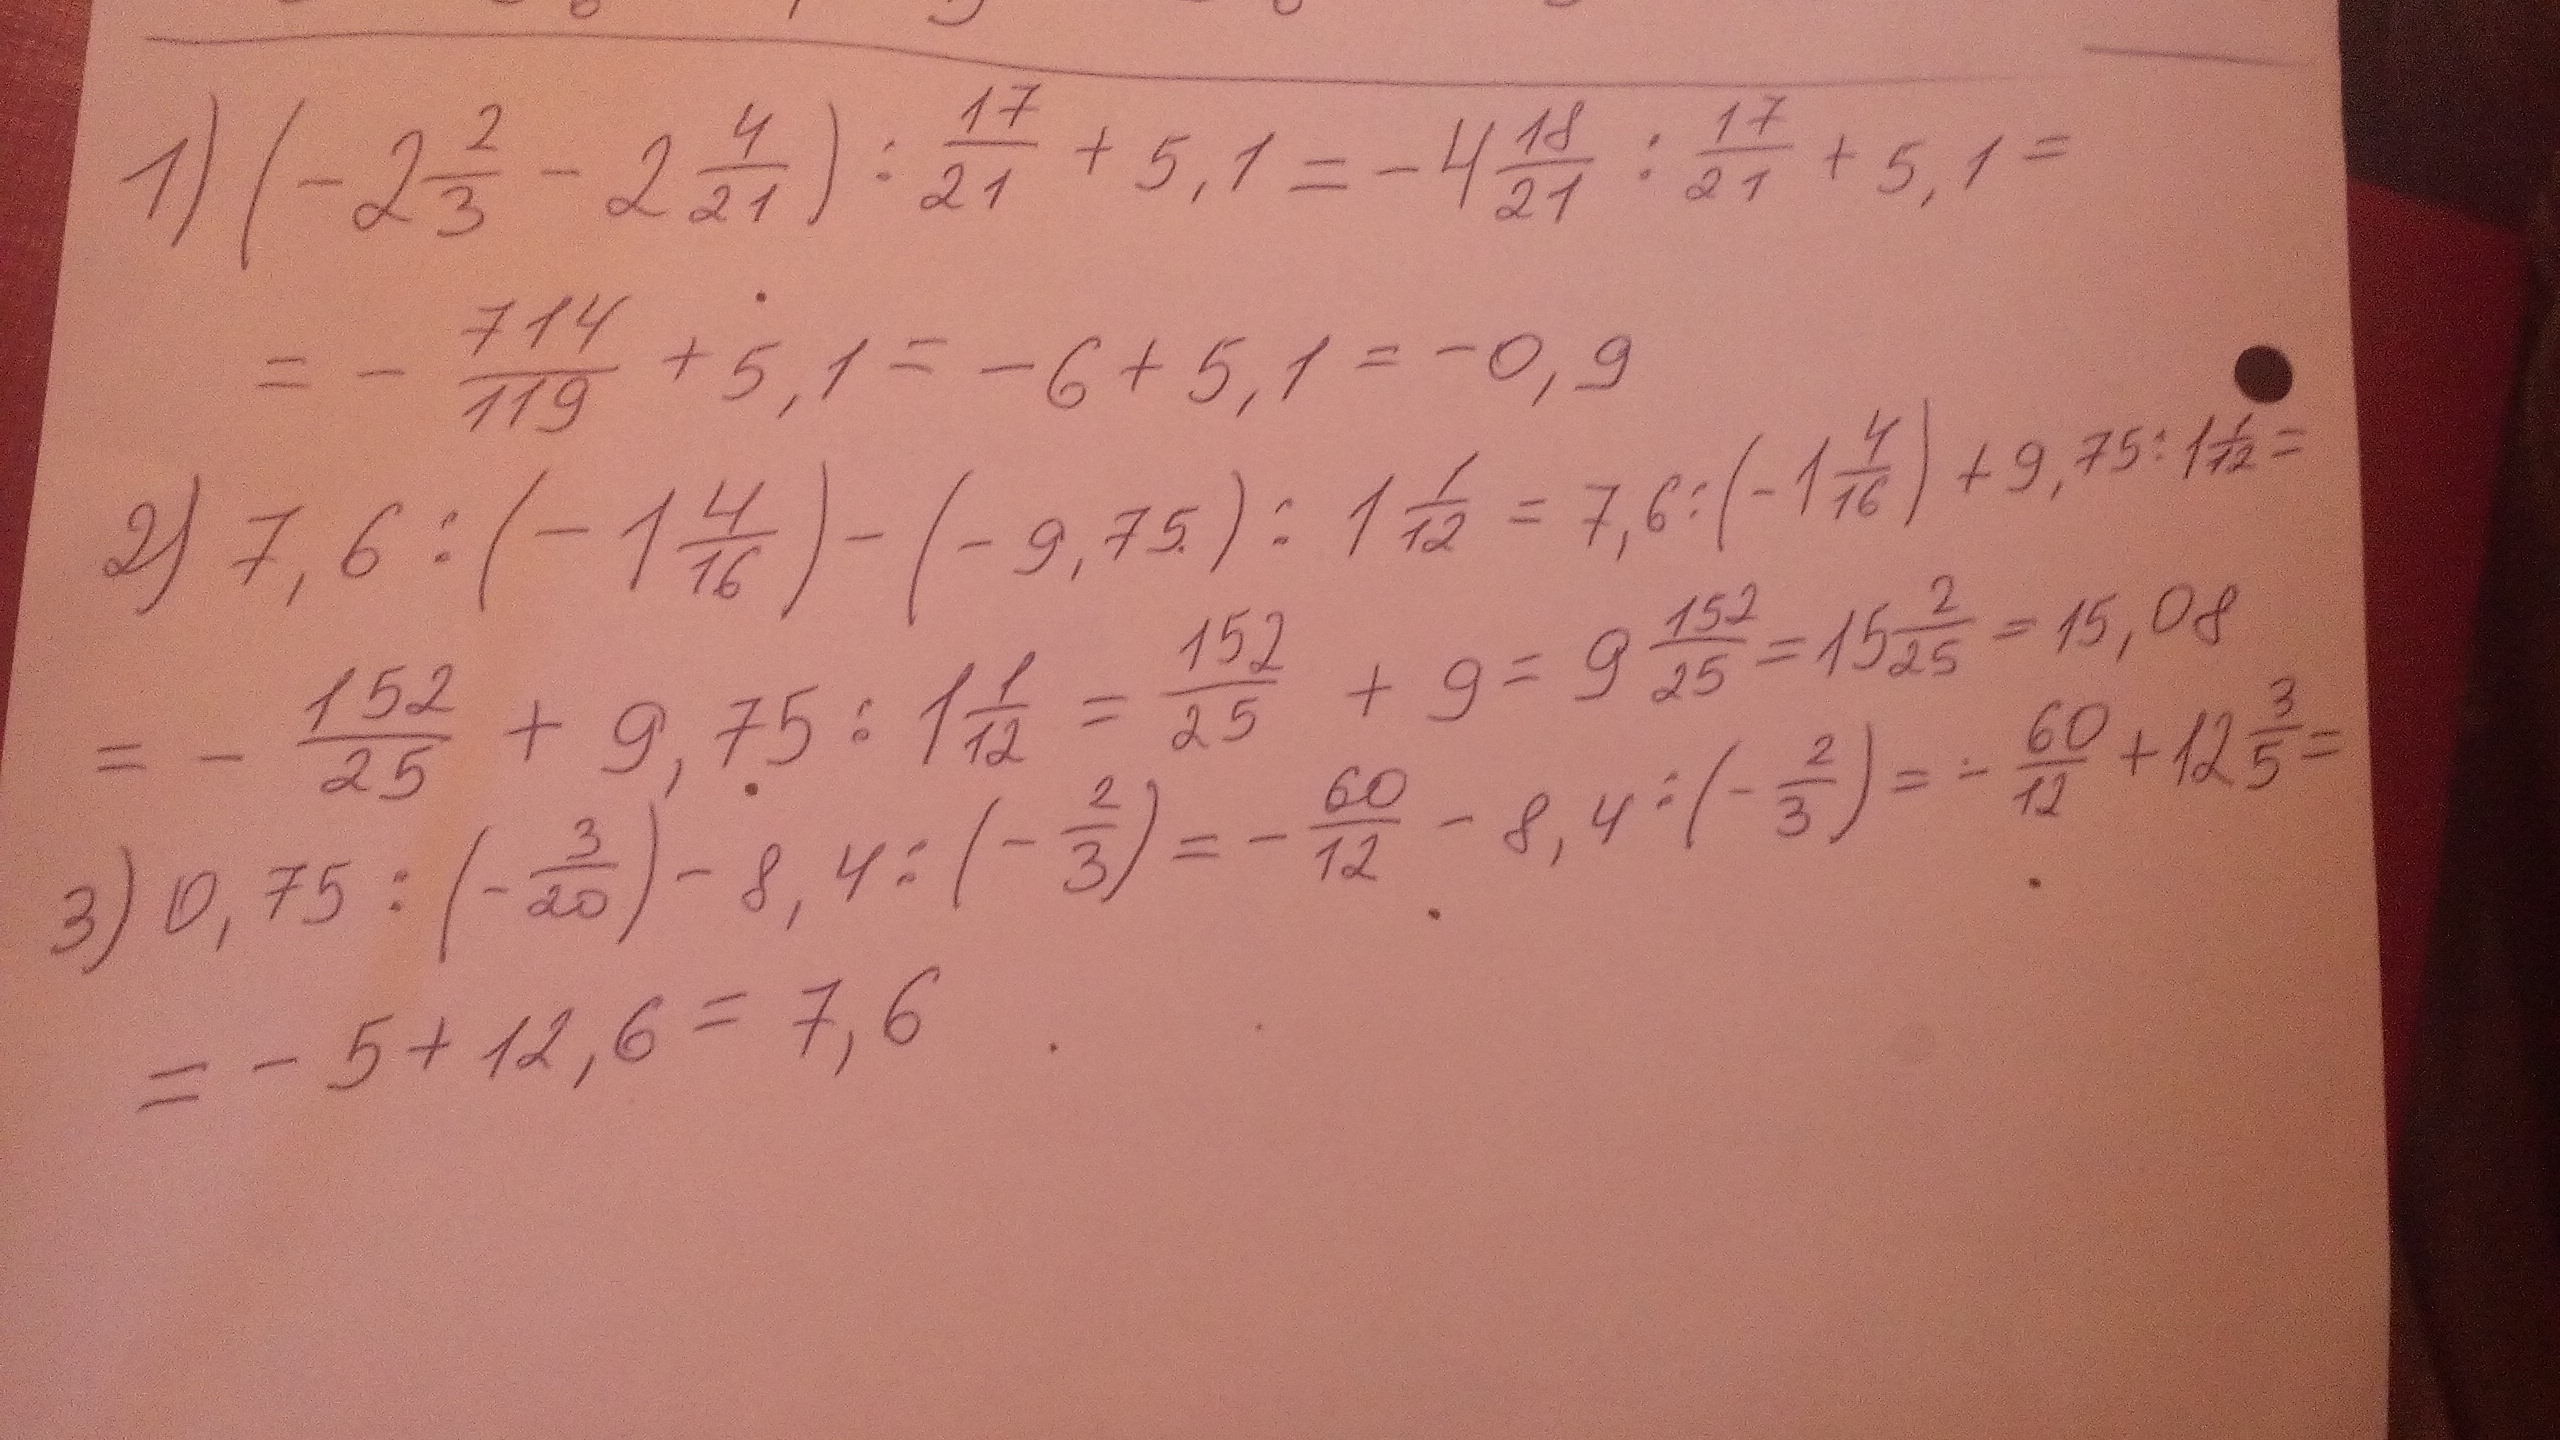 1) (-2 2/3 - 2 4/21) : 17/21 + 5,1 = -4 18/21 : 17/21 + 5,1 =
= - 714/119 + 5,1 = -6 + 5,1 = -0,9
2) 7,6 : (-1 4/16) - (-9,75) : 1 1/12 = 7,6 : (-1 4/16) + 9,75 : 1 1/12 =
= - 152/25 + 9,75 : 1 1/12 = 152/25 + 9 = 9 152/25 = 15 2/25 = 15,08
3) 0,75 : (- 3/20) - 8,4 : (- 2/3) = - 60/12 - 8,4 : (- 2/3) = - 60/12 + 12 3/5 =
= - 5 + 12,6 = 7,6